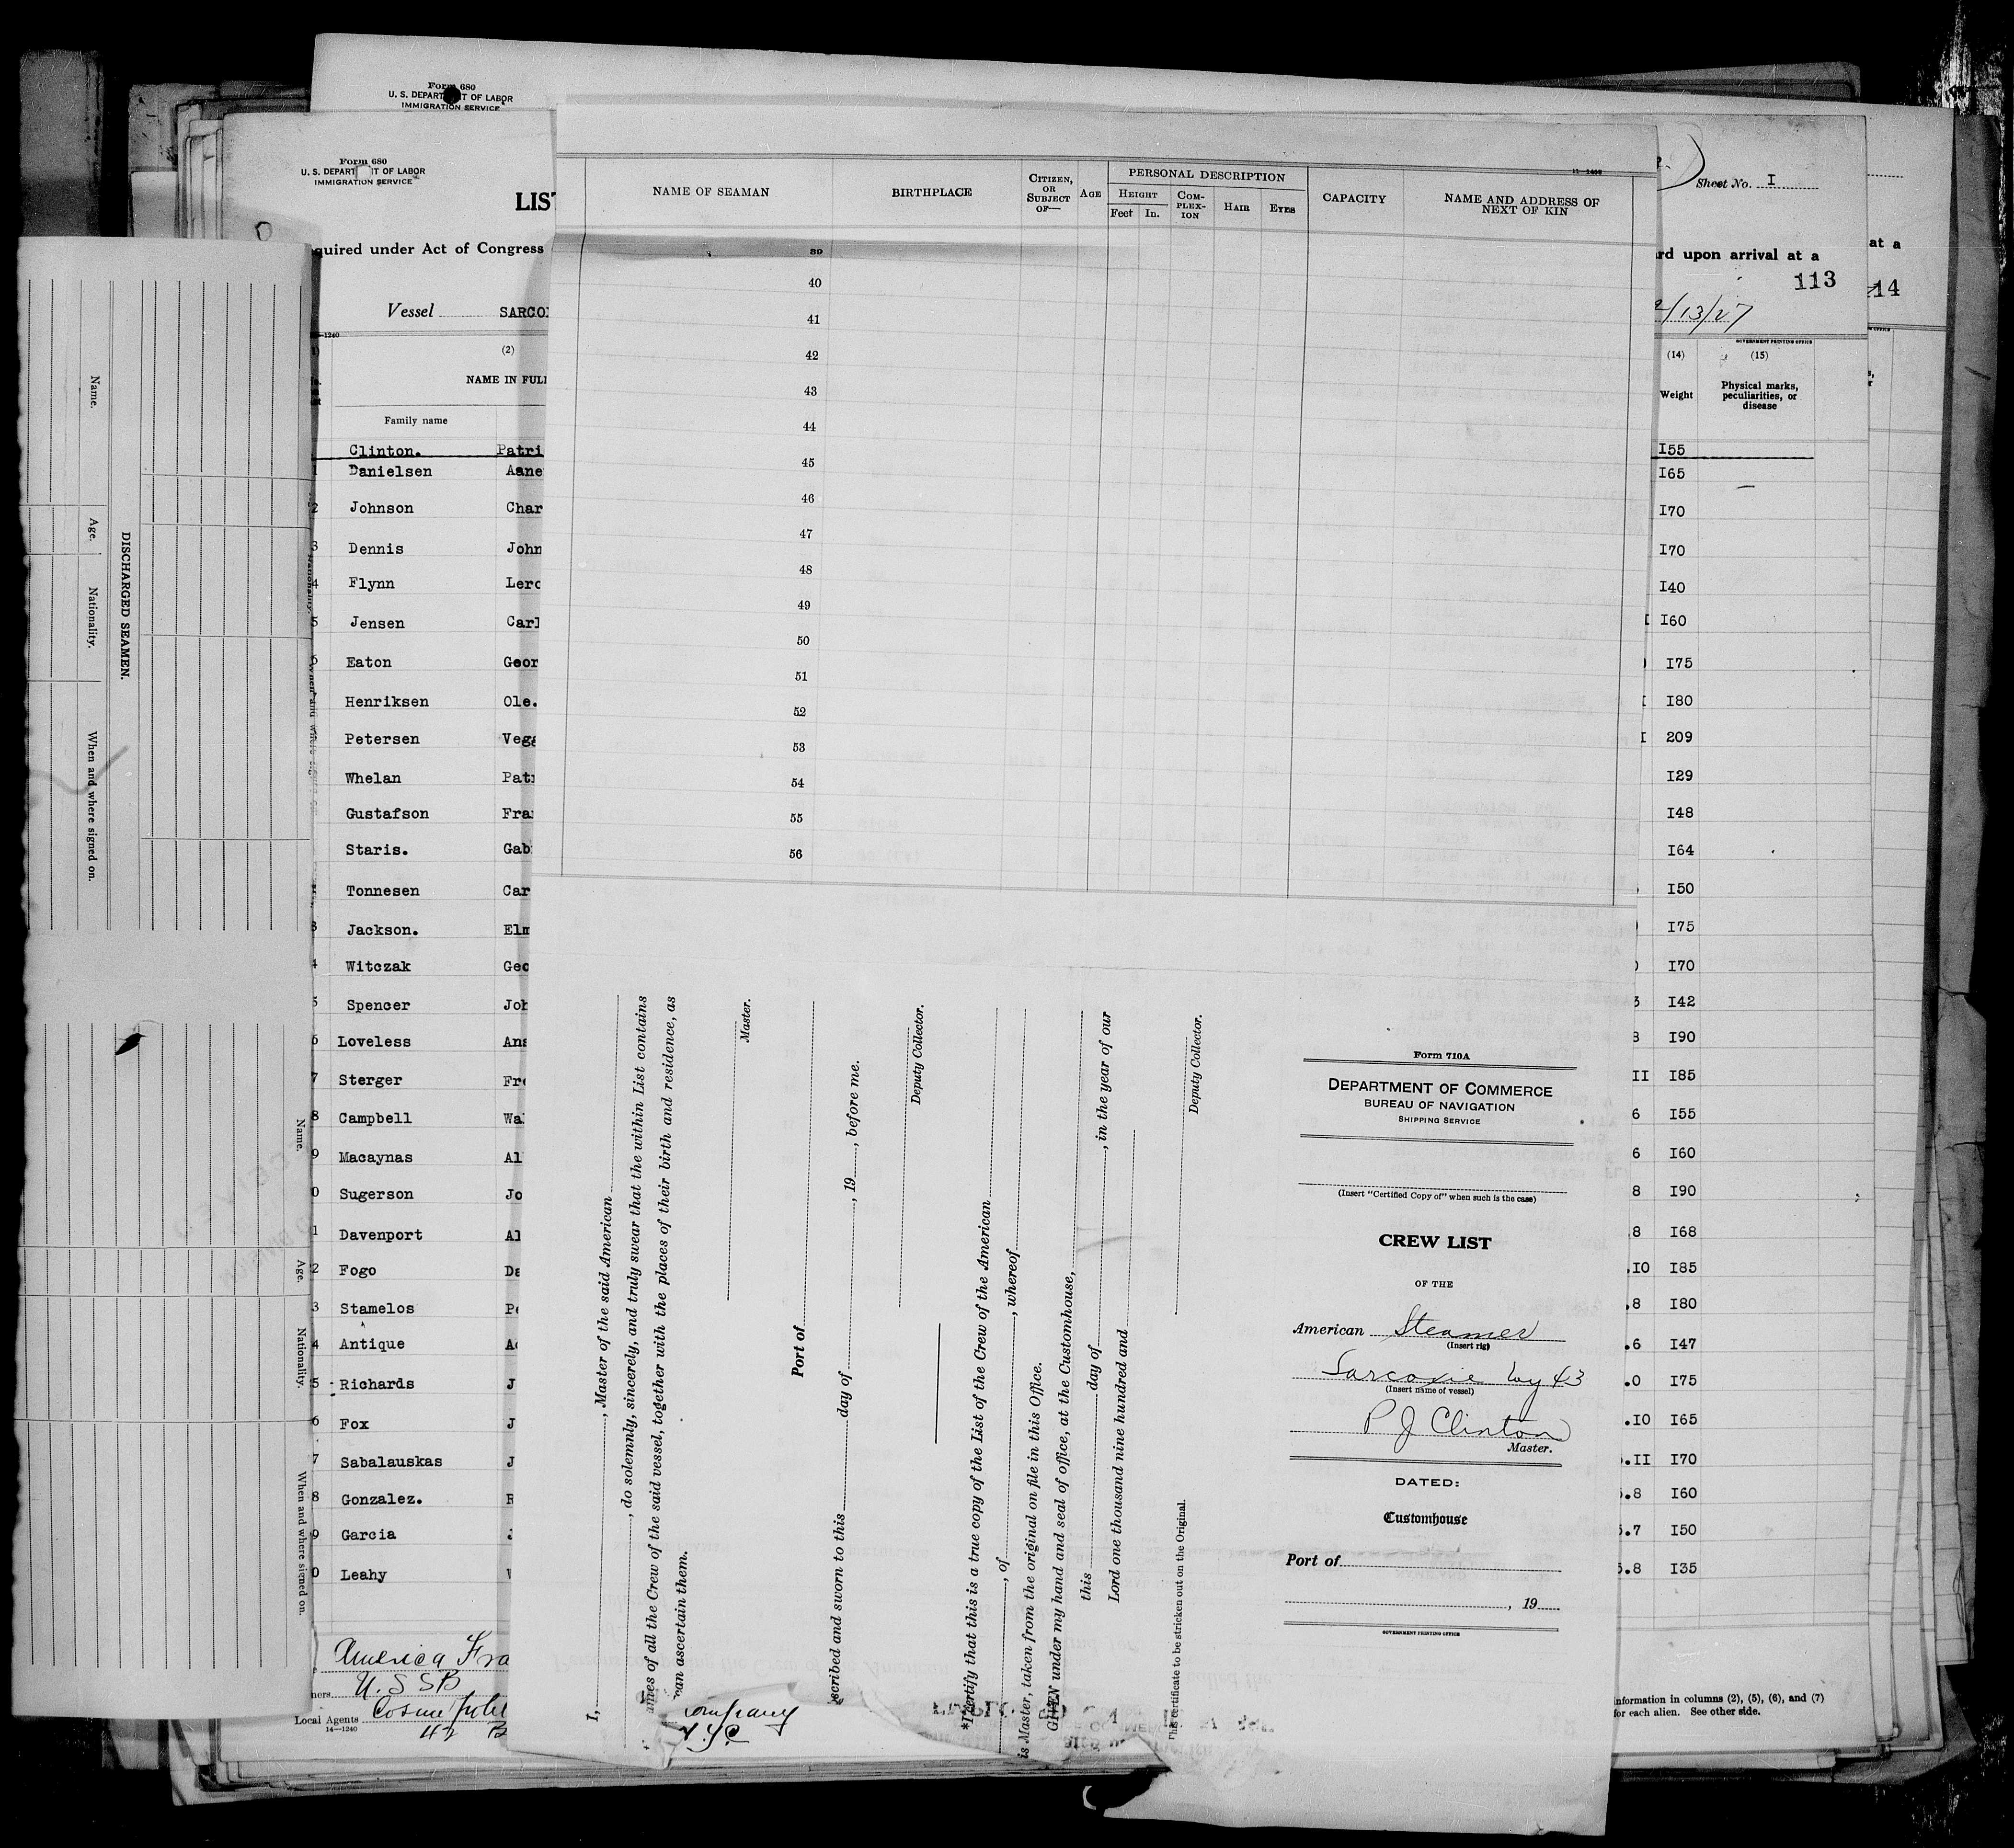 Form 680
U. S. DEPART T OF LABOR
IMMIGRATION SERVICE
Form 680
U. S. DEPART NT OF LABOR
IMMIGRATION SERVICE
LIS
quired under Act of Congress
Vessel SARCO
(2)
NAME IN FULL
Family name
Clinton. Patri
Danielsen Aane
2 Johnson Char
3 Dennis John
4 Flynn Lero
5 Jensen Carl
Eaton Geor
Henriksen Ole.
Petersen Vegg
Whelan Patr
Gustafson Fra
Staris. Gab
Tonnesen Car
3 Jackson. Elm
4 Witczak Geo
5 Spencer Joh
Loveless Ans
7 Sterger Fre
8 Campbell Wal
9 Macaynas Al
0 Sugerson Jo
1 Davenport Al
2 Fogo Da
3 Stamelos Pe
4 Antique Ad
5 Richards J
6 Fox J
7 Sabalauskas J
8 Gonzalez. R
9 Garcia J
0 Leahy W
America Fra
ners U.S S B
Local Agents Cosmopolit
14—1240
42 B
ompany
N.Y.C
DISCHARGED SEAMEN.
Name.
Age.
Nationality.
When and where signed on.
Name.
Age.
Nationality.
When and where signed on.
11—1469
NAME OF SEAMAN
BIRTHPLACE
CITIZEN, OR SUBJECT OF—
AGE
PERSONAL DESCRIPTION
HEIGHT
Feet In.
COM-PLEX-ION
HAIR
EYES
CAPACITY
NAME AND ADDRESS OF NEXT OF KIN
39
40
41
42
43
44
45
46
47
48
49
50
51
52
53
54
55
56
I, , Master of the said American
, do solemnly, sincerely, and truly swear that the within List contains
ames of all the Crew of the said vessel, together with the places of their birth and residence, as
can ascertain them.
Master.
Port of
scribed and sworn to this day of , 19 , before me.
Deputy Collector.
*I certify that this is a true copy of the List of the Crew of the American
, of , whereof
is Master, taken from the original on file in this Office.
GIVEN under my hand and seal of office, at the Customhouse,
this day of , in the year of our
Lord one thousand nine hundred and
Deputy Collector.
This certificate to be stricken out on the Original.
Form 710A
DEPARTMENT OF COMMERCE
BUREAU OF NAVIGATION
SHIPPING SERVICE
(Insert "Certified Copy of" when such is the case)
CREW LIST
OF THE
American Steamer
(Insert rig)
Sarcoxie
(Insert name of vessel)
P J Clinton
Master.
DATED:
Customhouse
Port of
, 19
GOVERNMENT PRINTING OFFICE
Sheet No. I
rd upon arrival at a
113
2/13/27
GOVERNMENT PRINTING OFFICE
(14) (15)
Weight
Physical marks, peculiarities, or disease
I55
I65
I70
I70
I40
I60
I75
I80
209
I29
I48
I64
I50
I75
I70
I42
8 I90
II I85
6 I55
6 I60
8 I90
8 I68
.IO I85
.8 I80
.6 I47
.0 I75
.IO I65
.II I70
.8 I60
.7 I50
.8 I35
information in columns (2), (5), (6), and (7)
for each alien. See other side.
at a
14